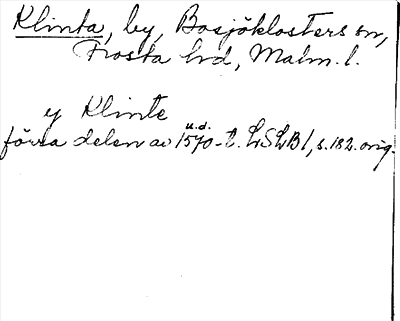 Klinta, by, Bosjöklosters sn,
Frosta hd, Malm. l.
y Klinte
u.d.
förra delen av 1570-t. LSLB1, s. 182. orig.